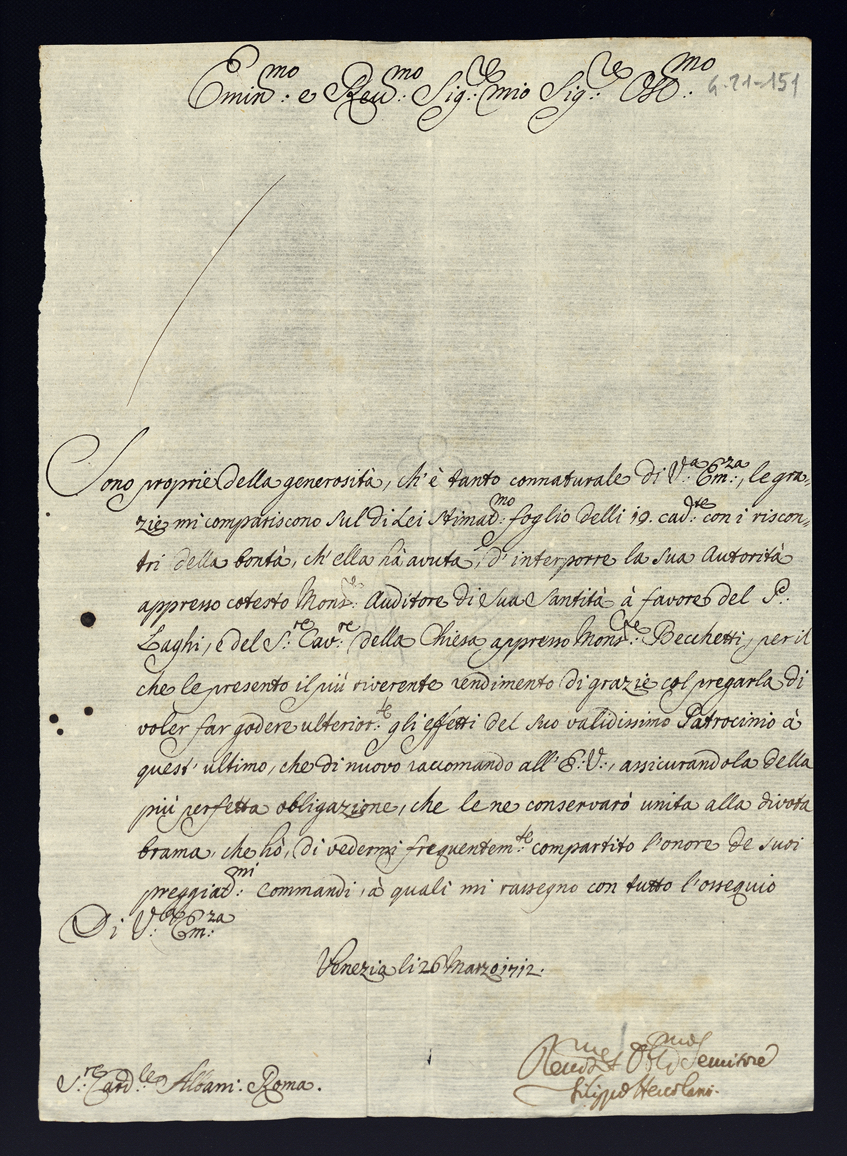 Emin.mo e Reu.mo Sig.re mio Sig.re Oss.mo
4-21-151
Sono proprie della generosità, ch'è tanto connaturale di V.a Em.za, le gra-
zie mi compariscono sul di Lei stimad.mo foglio delli 19. cad.te con i riscon-
tri della bontà, ch'ella hà avuta, d'interporre la sua Autorità
appresso cotesto Mons.re Auditore di Sua Santità à favore del P.
Laghi, e del S.re Cav.re della Chiesa appresso Mons.re Becchetti, per il
che le presento il più riverente rendimento di grazie col pregarla di
voler far godere ulterior.te gli effetti del suo validissimo Patrocinio à
quest'ultimo, che di nuovo raccomando all'E.V., assicurandola della
più perfetta obligazione, che le ne conservarò unita alla divota
brama, che hò, di vedermi frequentem.te compartito l'onore de suoi
preggiad.mi commandi, à quali mi rassegno con tutto l'ossequio
Di V.a Em.za
Venezia li 26 Marzo 1712.
S.re Card.le Albani. Roma.
Obl.mo Seruitore
Filippo Hercolani.